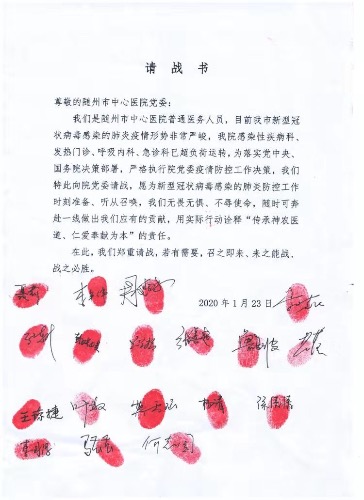 请 战 书
尊敬的随州市中心医院党委：
我们是随州市中心医院普通医务人员，目前我市新型冠
状病毒感染的肺炎疫情形势非常严峻，我院感染性疾病科、
发热门诊、呼吸内科、急诊科已超负荷运转，为落实党中央、
国务院决策部署，严格执行院党委疫情防控工作决策，我们
特此向院党委请战，愿为新型冠状病毒感染的肺炎防控工作
时刻准备、听从召唤，我们无畏无惧、不辱使命，随时可奔
赴一线做出我们应有的贡献，用实际行动诠释“传承神农医
道、仁爱奉献为本”的责任。
在此，我们郑重请战，若有需要，召之即来、来之能战、
战之必胜。
2020 年 1 月 23 日
王琼捷